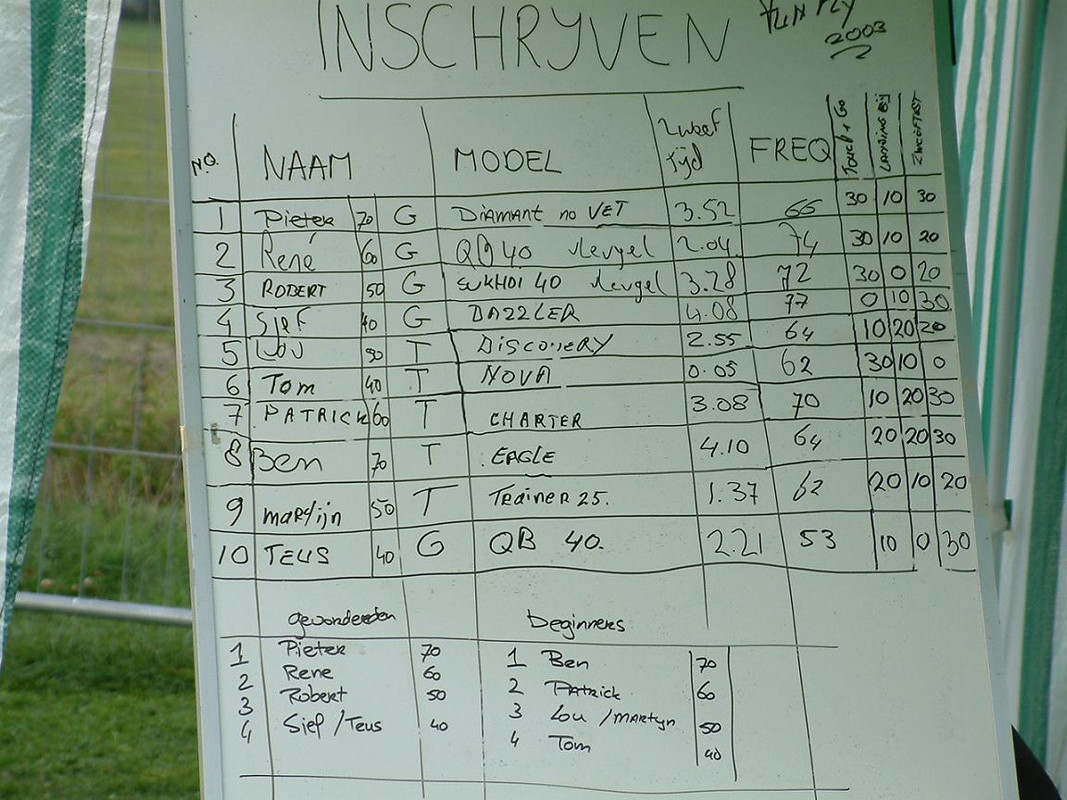 INSCHRYVEN
FUN FLY
2003
NO. NAAM MODEL Zweef tijd FREQ Touch + Go LANDING Bij ZWEEFTIJST
1 Pieter 70 G DIAMANT no VET 3.52 66 30 10 30
2 René 60 G QB 40 vleugel 2.04 74 30 10 20
3 ROBERT 50 G SUKHOI 40 vleugel 3.28 72 30 0 20
4 Sjef 40 G DAZZLER 4.08 77 0 10 30
5 LOU 50 T DISCOVERY 2.55 64 10 20 20
6 Tom 40 T NOVA 0.05 62 30 10 0
7 PATRICK 60 T CHARTER 3.08 70 10 20 30
8 Ben 70 T EAGLE 4.10 64 20 20 30
9 martijn 50 T Trainer 25. 1.37 62 20 10 20
10 TEUS 40 G QB 40. 2.21 53 10 0 30
gevorderden beginners
1 Pieter 70 1 Ben 70
2 Rene 60 2 Patrick 60
3 Robert 50 3 Lou / MARTyn 50
4 Sjef / Teus 40 4 Tom 40